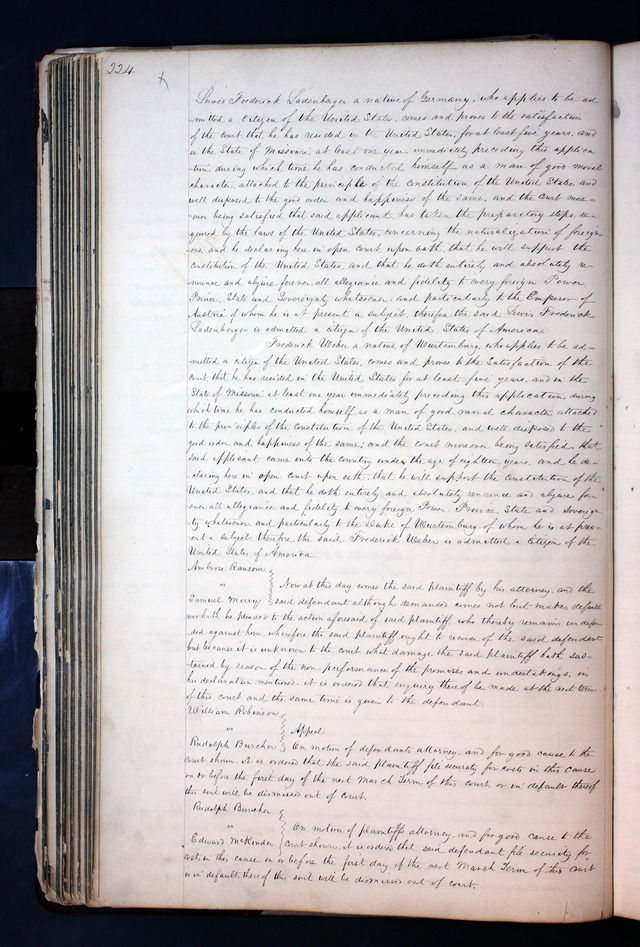 224
Lewis Frederick Ladenhager a native of Germany, who applies to be ad-
mitted a citizen of the United States, comes and proves to the satisfaction
of the court that he has resided in the United States, for at least five years, and
in the State of Missouri, at least one year, immediately preceding this applica-
tion during which time he has conducted himself as a man of good moral
character, attached to the principles of the constitution of the United States, and
well disposed to the good order and happiness of the same, and the Court more-
over being satisfied that said applicant, has taken the preparatory steps, re-
quired by the laws of the United States, concerning the naturalization of foreign-
ers, and he declaring here in open court upon oath, that he will support the
constitution of the United States, and that he doth entirely and absolutely re-
nounce and abjure forever all allegiance and fidelity to every foreign Power
Prince, State and Sovereignty whatsoever, and particularly to the Emperor of
Austria of whom he is at present a subject, therefore the said Lewis Frederick
Ladenhager is admitted a citizen of the United States of America
Frederick Weber a native of Wurtemburg, who applies to be ad-
mitted a citizen of the United States, comes and proves to the Satisfaction of the
court, that he has resided in the United States for at least five years, and in the
State of Missouri at least one year immediately preceding this application, during
which time he has conducted himself as a man of good moral character attached
to the principles of the constitution of the United States, and well disposed to the
good order and happiness of the same; and the court moreover being satisfied, that
said applicant came into the country under the age of eighteen years, and he de-
claring here in open court upon oath, that he will support the Constitution of the
United States, and that he doth entirely and absolutely renounce and abjure for-
ever all allegiance and fidelity to every foreign Power Prince, State and Sovereign-
ty whatsoever, and particularly to the Duke of Wurtemburg, of whom he is at pres-
ent a Subject, therefore the said Frederick Weber is admitted a Citizen of the
United States of America
Ambrose Ransom
"
Now at this day comes the said plaintiff by his attorney, and the
Samuel Merry said defendant although demanded comes not but makes default
nor hath he pleaded to the action aforesaid of said plaintiff who thereby remains undefen-
ded against him, wherefore the said plaintiff ought to recover of the said defendant
but because it is unknown to the court what damage the said plaintiff hath sus-
tained by reason of the non-performance of the promises and undertakings, in
his declaration mentioned, it is ordered that enquiry thereof be made at the next term
of this court and the same time is given to the defendant.
William Robinson
"
Appeal
Rudolph Bircher On motion of defendants attorney, and for good cause to the
court shown, it is ordered that the said plaintiff file security for costs in this cause
on or before the first day of the next March Term of this court or in default thereof
this suit will be dismissed out of court.
Rudolph Bircher
"
On motion of plaintiffs attorney, and for good cause to the
Edward McKinder court shown, it is ordered that said defendant file security for
costs, in this cause on or before the first day of the next March Term of this court
or in default, thereof the suit will be dismissed out of court.